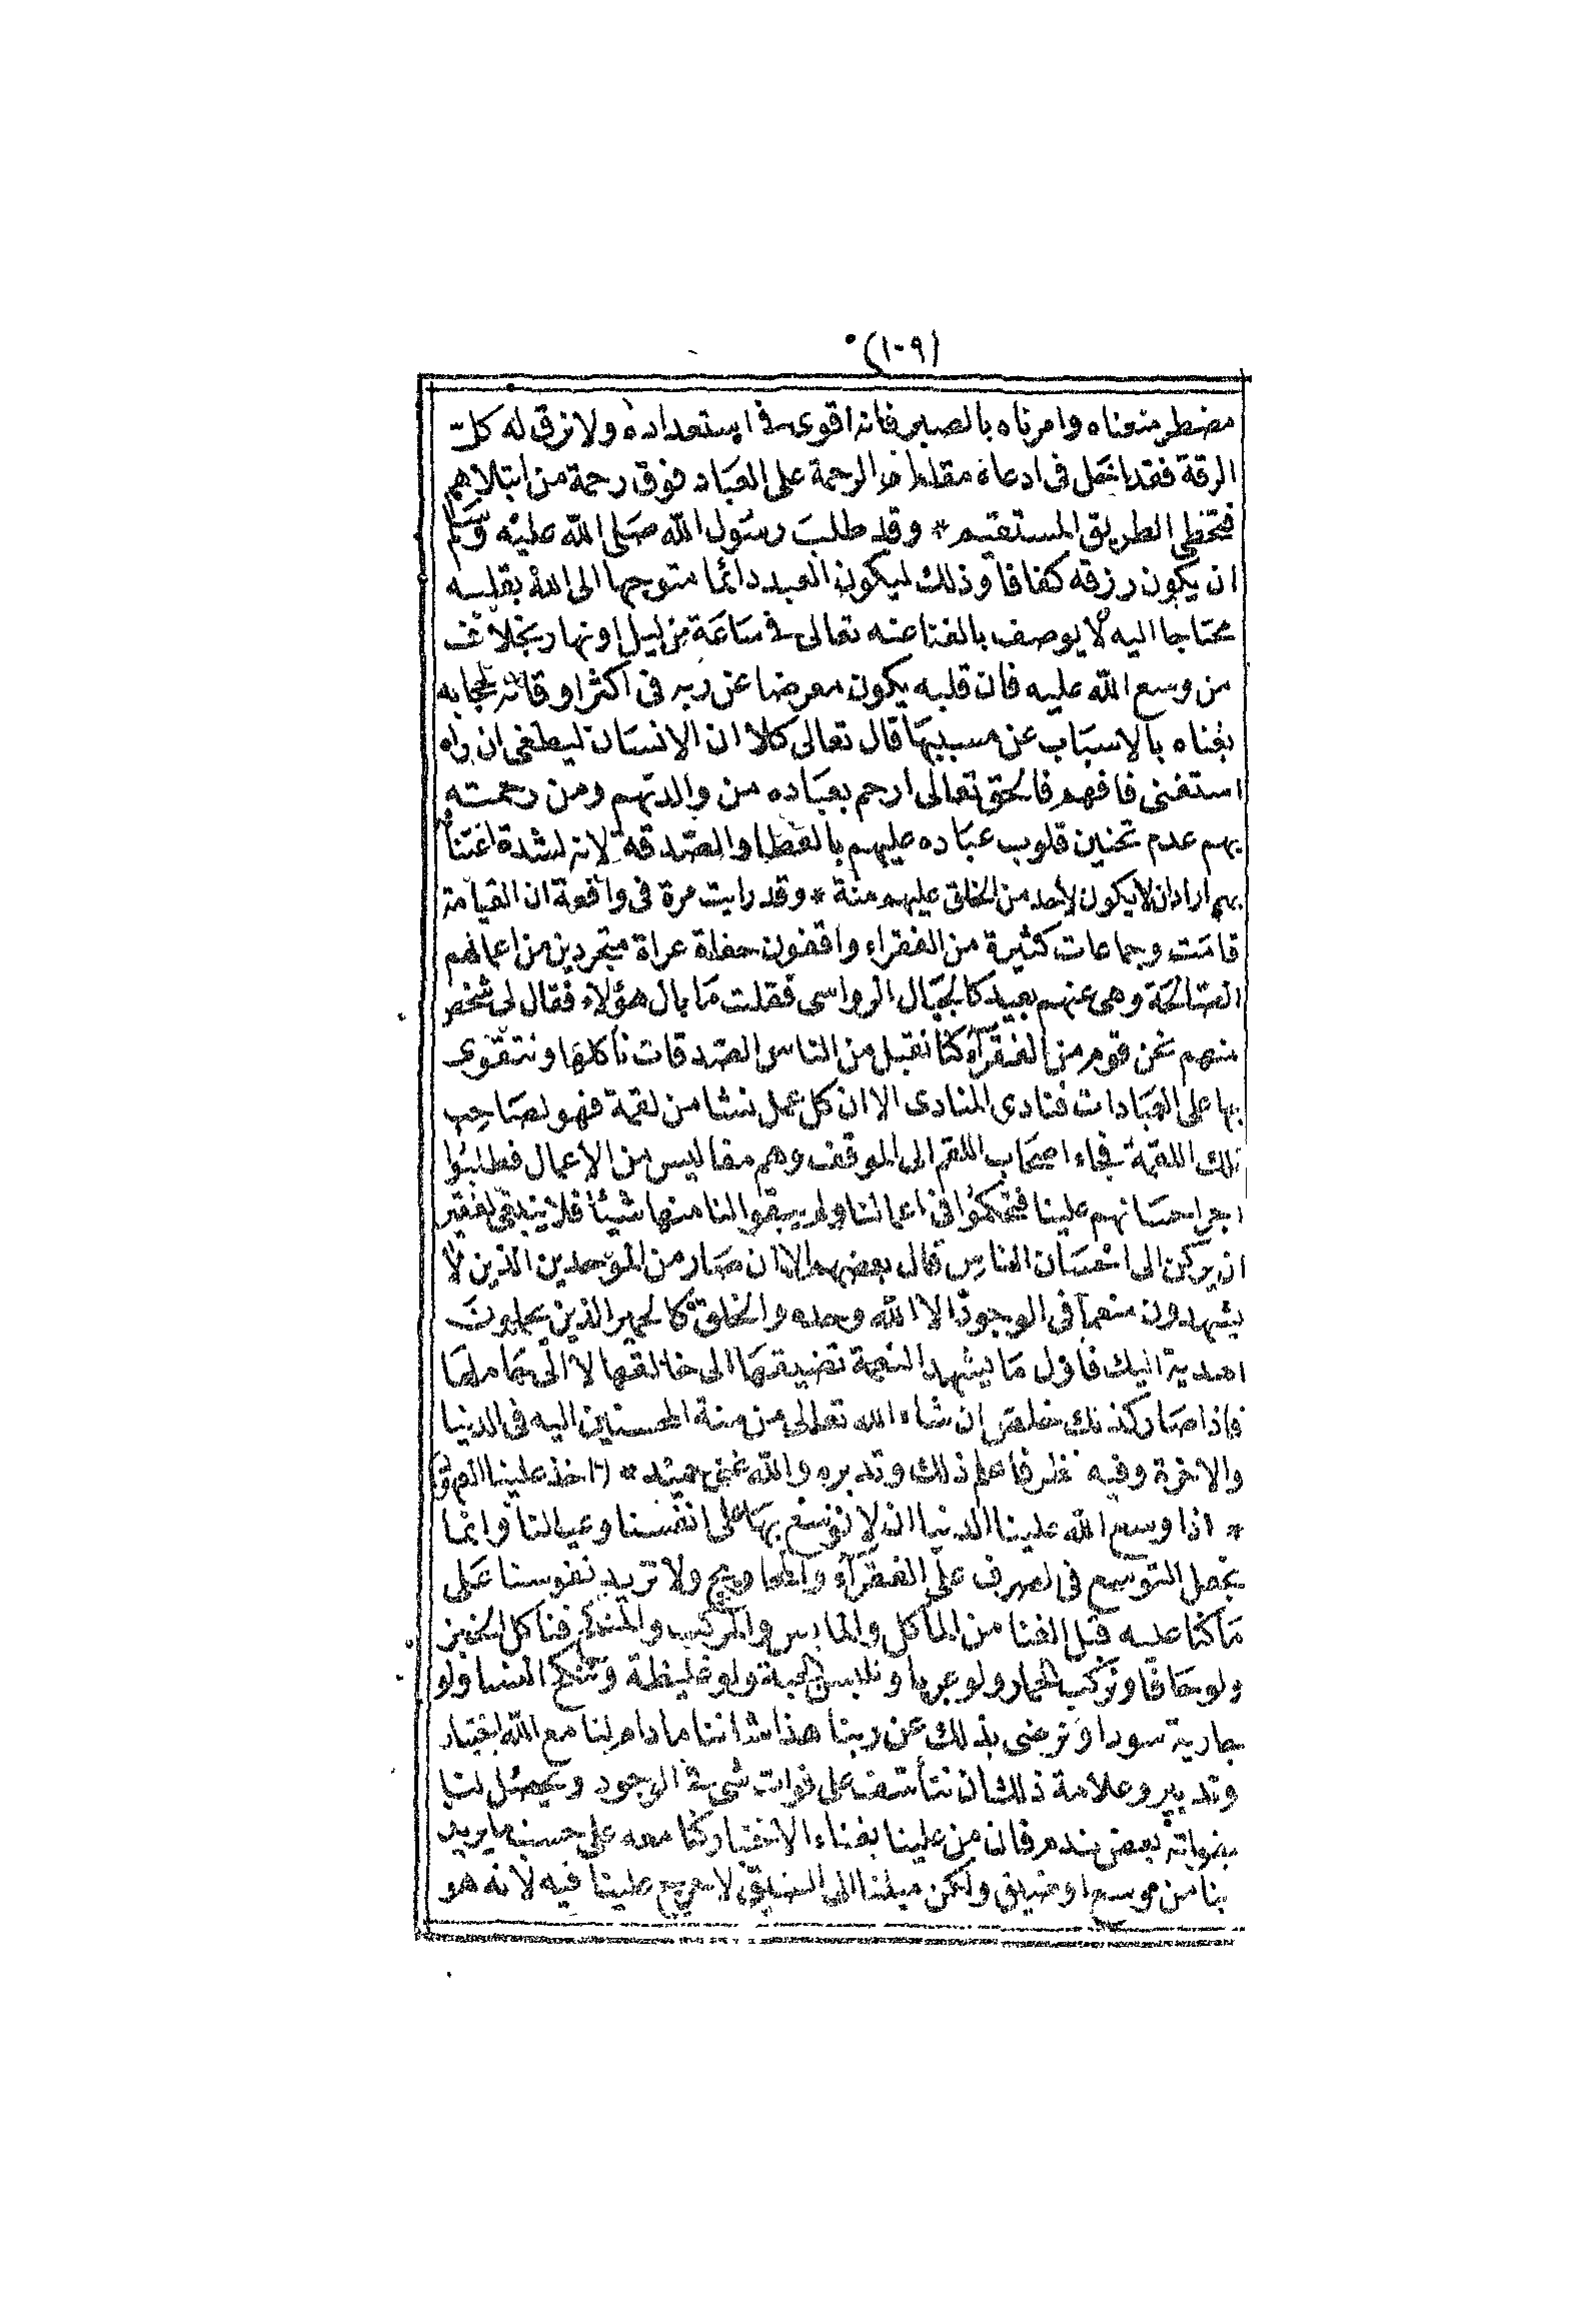 (١٠٩)
مضطر منعناه وامرناه بالصبر فانه اقوى فى استعداده ولا نرق له كل
الرقة فقد اخل فى ادعاه مقام الرحمة على العباد فوق رحمة من ابتلاهم
فتخطى الطريق المستقيم * وقد طلب رسول الله صلى الله عليه وسلم
ان يكون رزقه كفافا وذلك ليكون العبد دائما متوجها الى الله بقلبه
محتاجا اليه لا يوصف بالغنا عنه تعالى فى ساعة من ليل او نهار بخلاف
من وسع الله عليه فان قلبه يكون معرضا عن ربه فى اكثر اوقاته لحجابه
بغناه بالاسباب عن مسببها قال تعالى كلا ان الانسان ليطغى ان رآه
استغنى فافهم فالحق تعالى ارحم بعباده من والدتهم ومن رحمته
بهم عدم تحنين قلوب عباده عليهم بالعطا والصدقة لانه لشدة اعتنائه
بهم اراد ان لا يكون لاحد من الخلق عليهم منة * وقد رايت مرة فى واقعة ان القيامة
قامت وجماعات كثيرة من الفقراء واقفون حفاة عراة متجردين من اعمالهم
الصالحة وهى عنهم بعيد كالجبال الرواسى فقلت ما بال هؤلاء فقال لى شخص
منهم نحن قوم من الفقرآء كنا نقبل من الناس الصدقات نأكلها ونتقوى
بها على العبادات فنادى المنادى الا ان كل عمل نشا من لقمة فهو لصاحب
تلك اللقمة فجاء اصحاب اللقم الى الموقف وهم مفاليس من الاعمال فطلبوا
اجر احسانهم علينا فتحكموا فى اعمالنا ولم يبقوا لنا منها شيئا فلا ينبغى لفقير
ان يركن الى احسان الناس قال بعضهم الا ان صار من الموحدين الذين لا
يشهدون منعما فى الوجود الا الله وحده والخلق كالحمير الذين يحملون
الهدية اليك فاول ما يشهد النعمة تضيفها الى خالقها لا الى حاملها
فاذا صار كذلك خلص ان شاء الله تعالى من منة المحسنين اليه فى الدنيا
والاخرة وفيه نظر فاعلم ذلك وتدبره والله غنى حميد * (اخذ علينا العهود)
* اذا وسع الله علينا الدنيا ان لا نوسع بها على انفسنا وعيالنا وانما
نجعل التوسع فى الصرف على الفقرآء والمحاويج ولا تزيد نفوسنا على
ما كنا عليه قبل الغنا من المأكل والملابس والمركب والمنكح فنأكل الخبز
ولو حافا ونركب الحمار ولو عريا ونلبس الجبة ولو غليظة وننكح النسا ولو
جارية سودا ونرضى بذلك عن ربنا هذا شاننا ما دام لنا مع الله اختيار
وتدبير وعلامة ذلك ان نتأسف على فوات شى فى الوجود ويحصل لنا
بفواته بعض ندم فان من علينا بفناء الاختيار كنا معه على حسب ما يريد
بنا من موسع او ضيق ولكن ميلنا الى الضيق لا حرج علينا فيه لانه هو